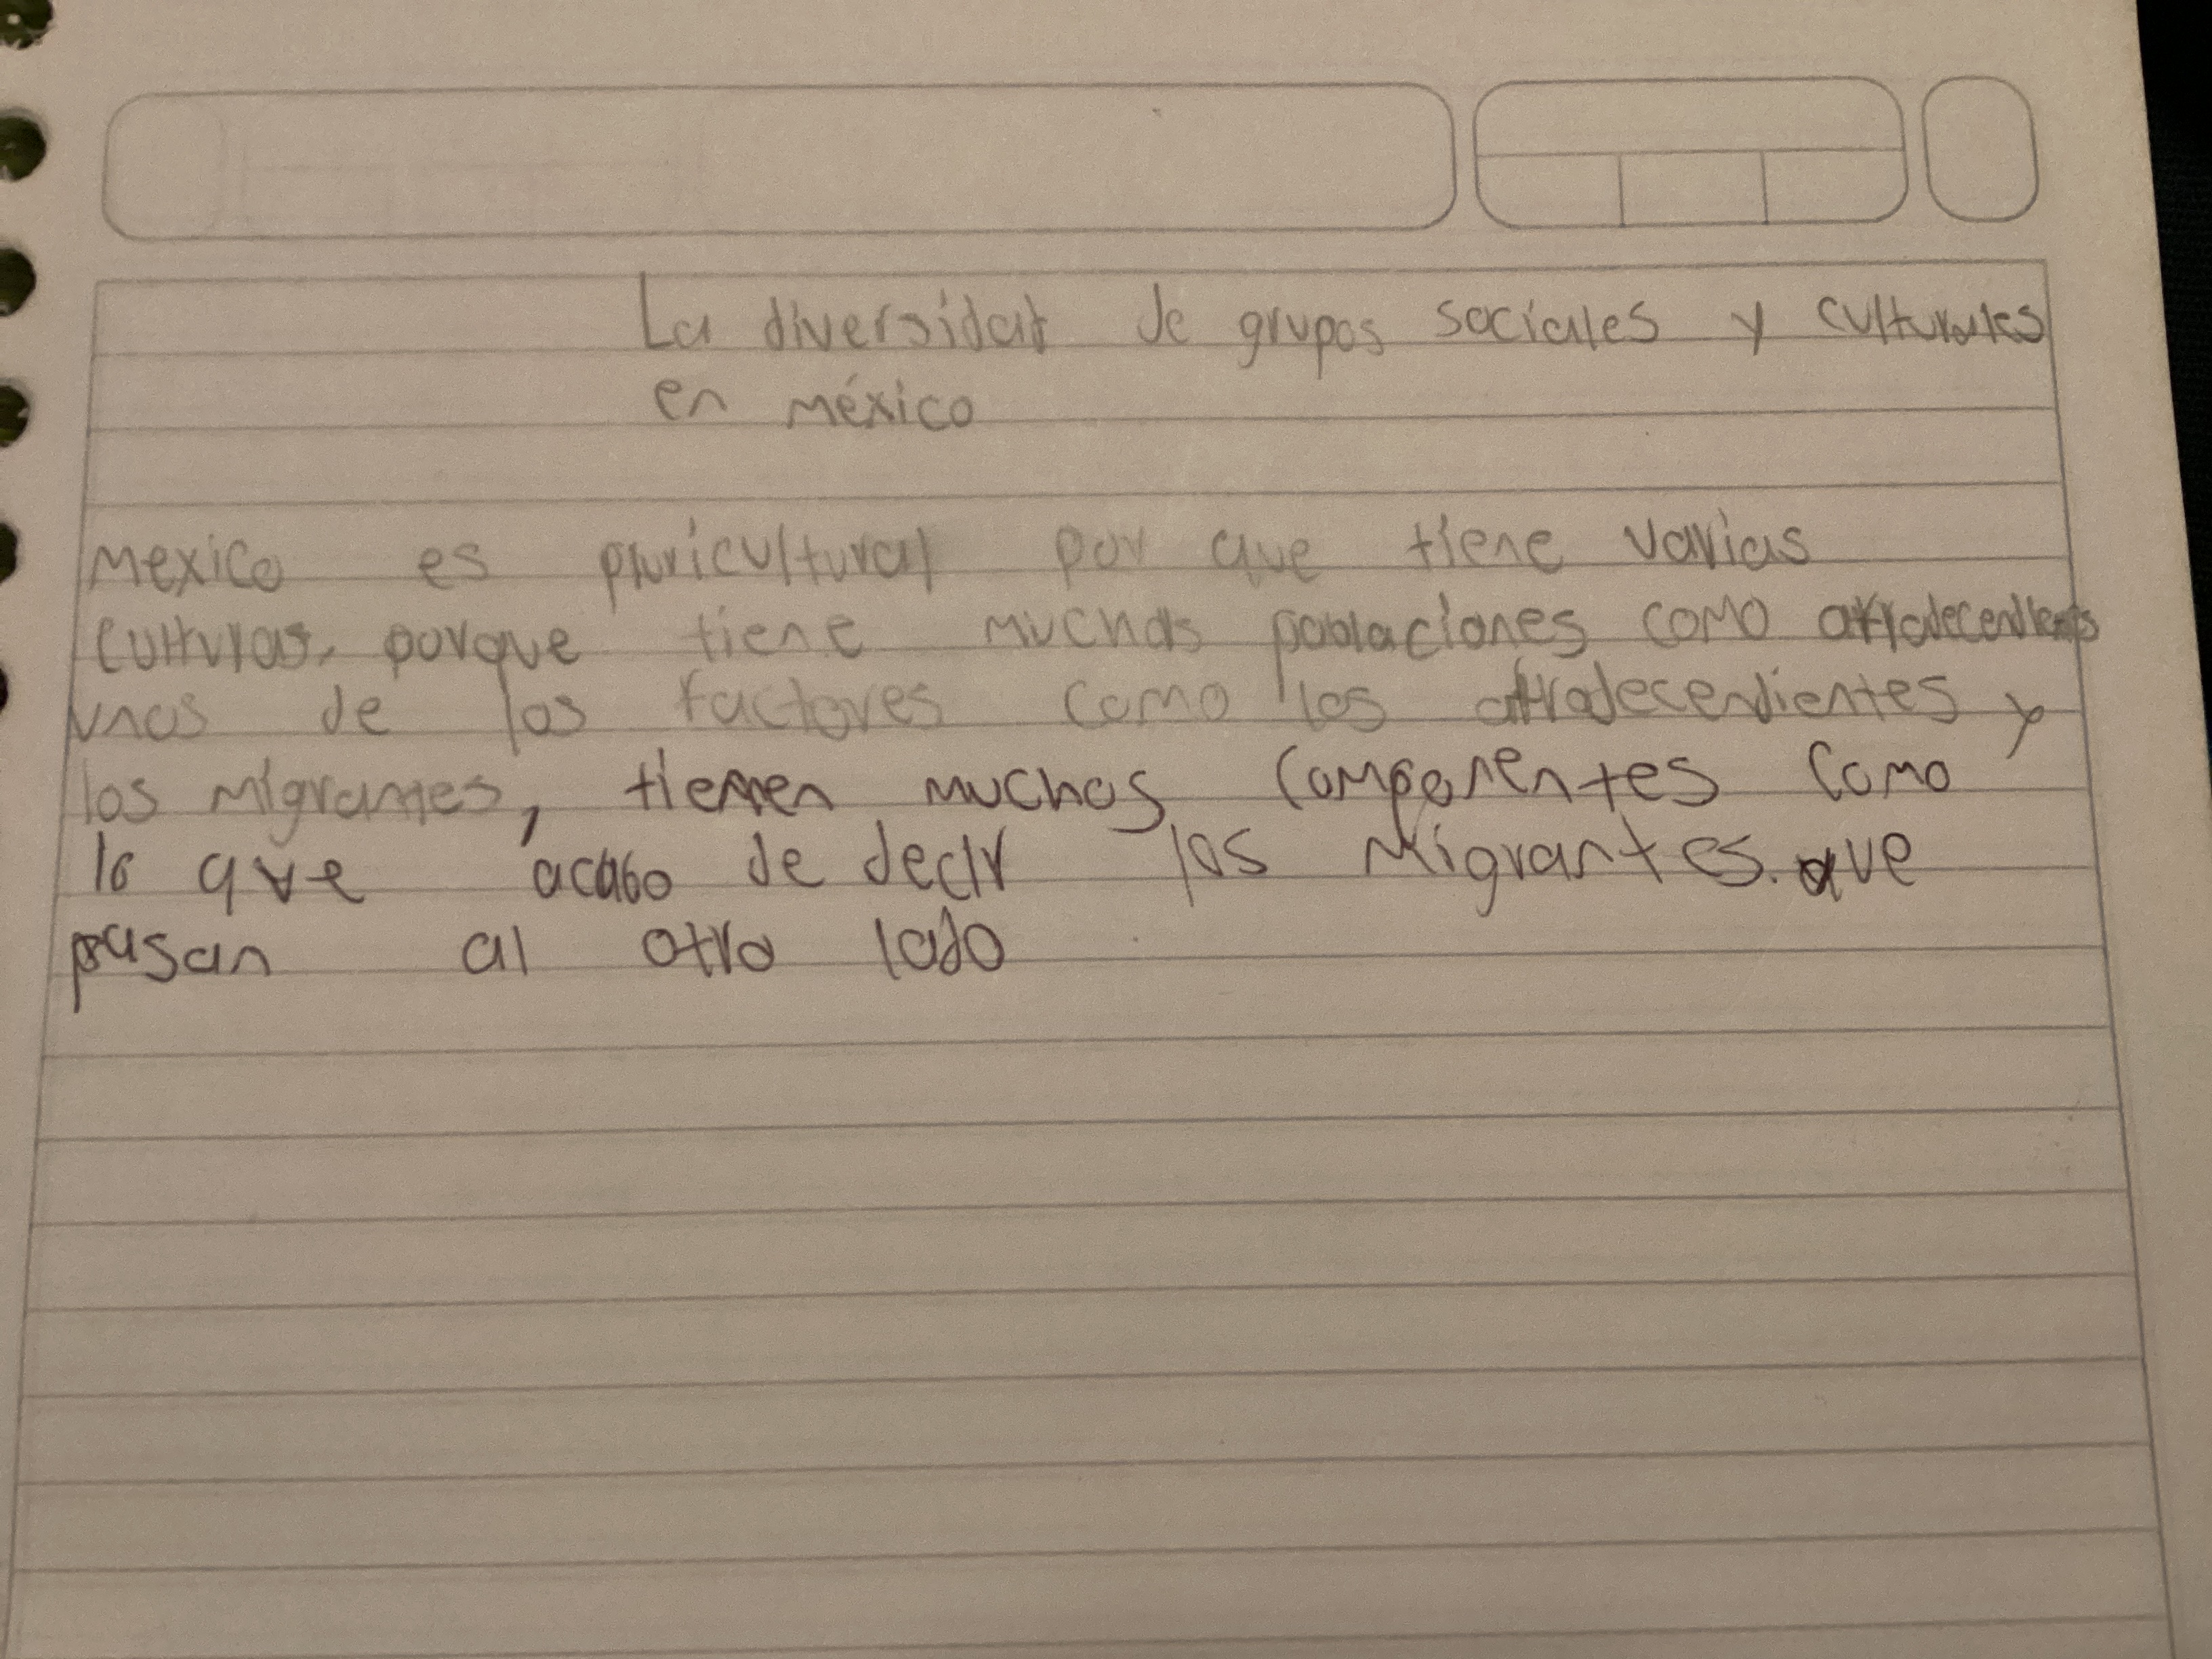 La diversidad de grupos sociales y culturales
en méxico
mexico es pluricultural por que tiene varias
culturas. porque tiene muchas poblaciones como afrodecendientes
unos de los factores como los afrodecendientes y
los migrantes, tienen muchos componentes como
lo que acabo de decir los migrantes. que
pasan al otro lado